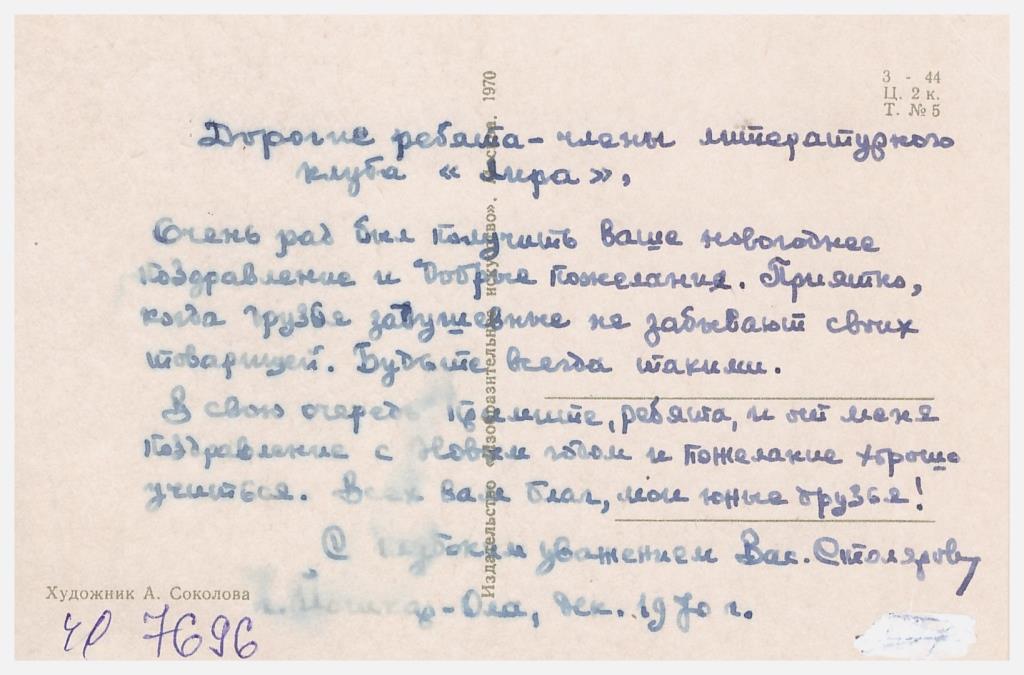 3 - 44
Ц. 2 к.
Т. № 5
Издательство «Изобразительное искусство». Москва. 1970
Дорогие ребята - члены литературного
клуба «Лира»,
Очень рад был получить ваше новогоднее
поздравление и добрые пожелания. Приятно,
когда друзья задушевные не забывают своих
товарищей. Будьте всегда такими.
В свою очередь примите, ребята, и от меня
поздравление с Новым годом и пожелание хорошо
учиться. Всех вам благ, мои юные друзья!
С глубоким уважением Вас. Столяров
г. Йошкар-Ола, дек. 1970 г.
Художник А. Соколова
7696